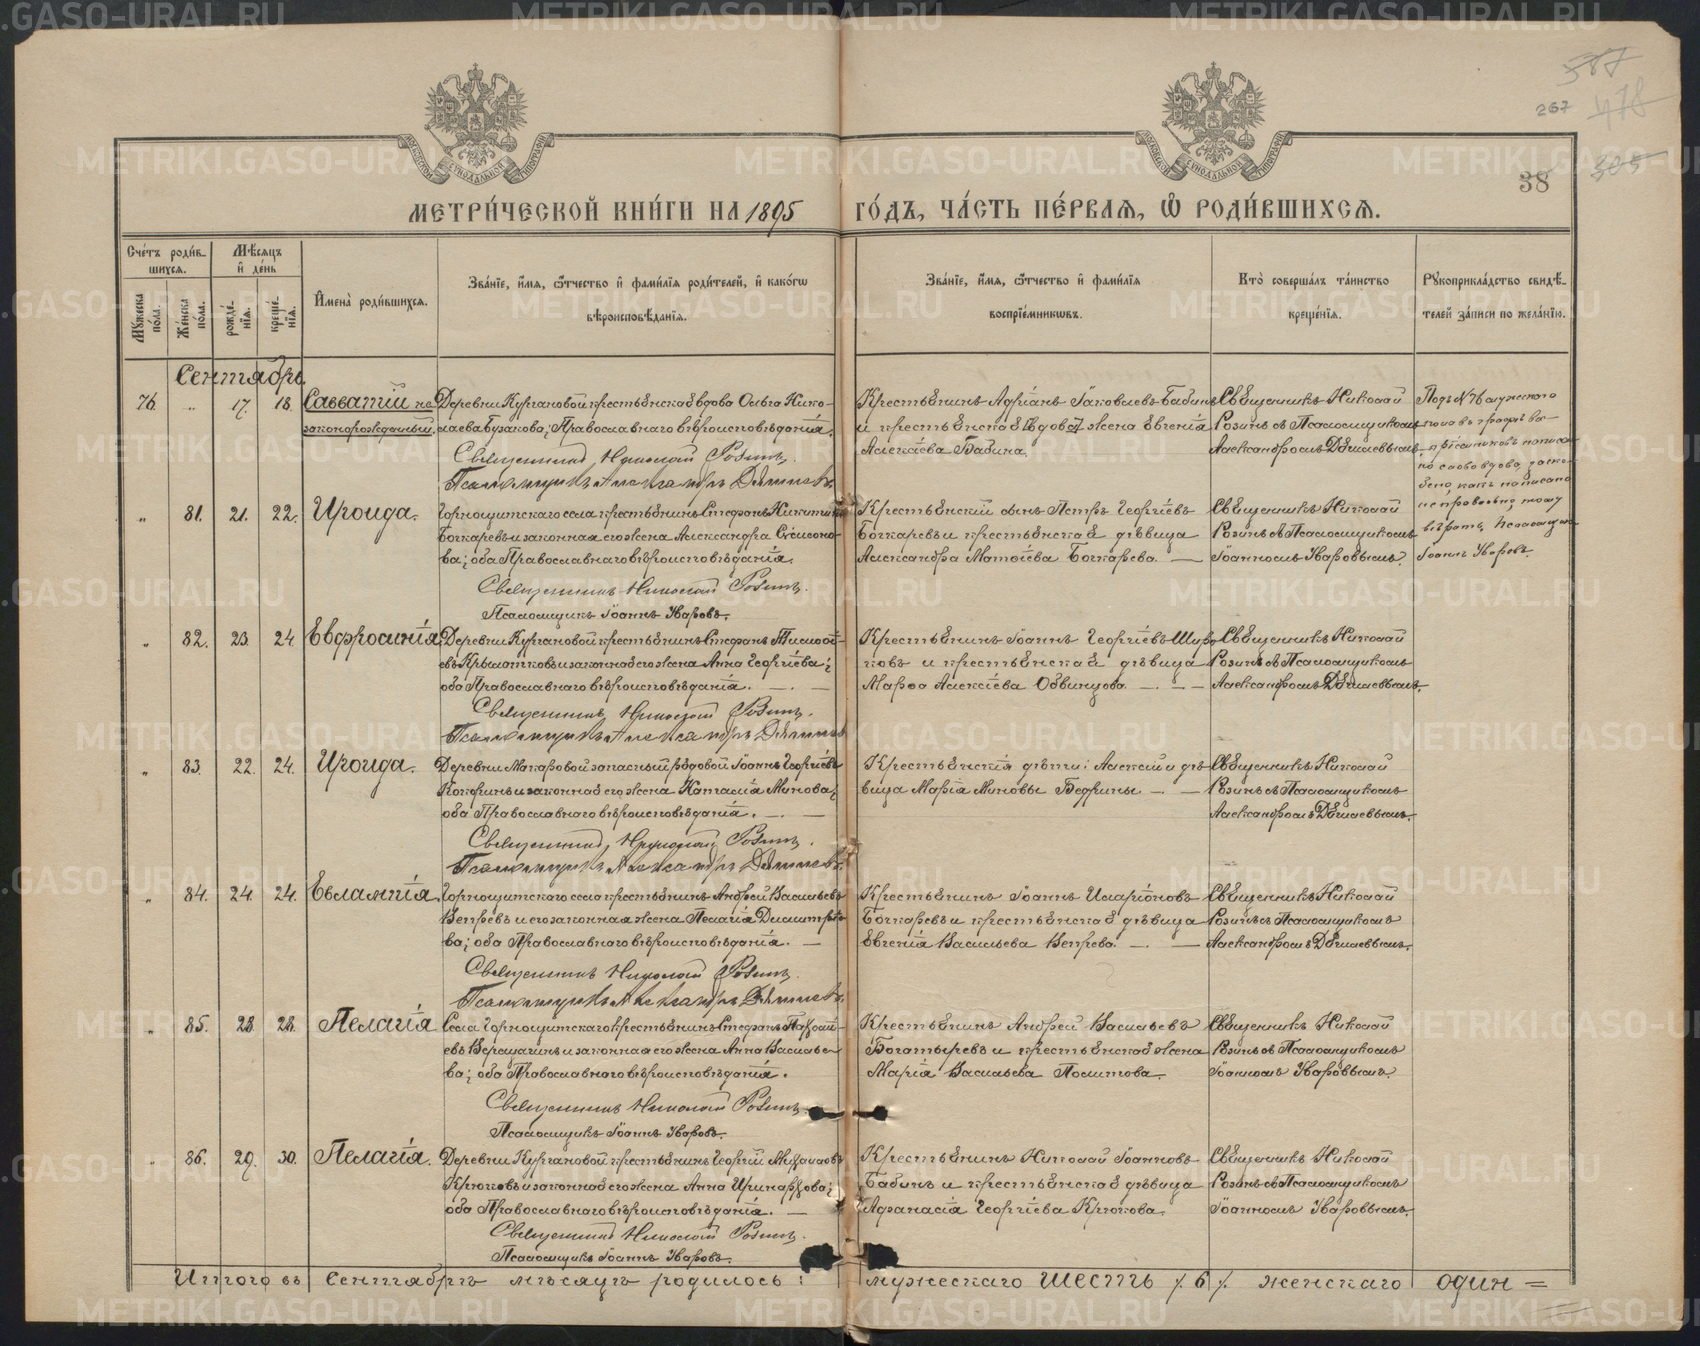 587
267 478
305
38
МЕТРИ́ЧЕСКОЙ КНИ́ГИ НА 1895 ГО́ДЪ, ЧА́СТЬ ПЕ́РВАЯ, Ѽ РОДИ́ВШИХСЯ.
Сче́тъ роди́в-шихся.
Мѣ́сяцъ и҆ де́нь
Мꙋ́жеска по́ла.
Же́нска по́ла.
рожде́-нїѧ.
креще́-нїѧ.
И҆мена̀ роди́вшихся.
Зва́нїе, и҆́мя, ѻ҆́тчество и҆ фами́лїя роди́телей, и҆ како́гѡ вѣроисповѣ́данїя.
Зва́нїе, и҆́мя, ѻ҆́тчество и҆ фами́лїя воспрїе́мникѡвъ.
Кто̀ соверша́лъ та́инство креще́нїя.
Рꙋкоприкла́дство свидѣ́-телей за́писи по жела́нїю.
Сентябрь.
76 „ 17. 18. Савватій не-
законорожденный.
Деревни Кургановой крестьянская вдова Ольга Нико-
лаева Бузакова; Православнаго вѣроисповѣданія.
Священникъ Николай Розинъ.
Псаломщикъ Александръ
Крестьянинъ Адріанъ Іаковлевъ Бабинъ
и крестьянская вдова жена Евгенія
Алексіева Бабина.
Священникъ Николай
Розинъ съ Псаломщикомъ
Александромъ
Подъ № 76 мужескаго
пола въ графѣ во-
спріемниковъ написа-
но слово вдова, доско-
блено, какъ написано
неправильно, тому
вѣрить, Псаломщикъ
Іоаннъ Уваровъ.
„ 81. 21. 22. Ироида.
Горнощитскаго села крестьянинъ Стефанъ Никитинъ
Бочкаревъ и законная его жена Александра Сѵмеоно-
ва; оба Православнаго вѣроисповѣданія.
Священникъ Николай Розинъ.
Псаломщикъ Іоаннъ Уваровъ.
Крестьянскій сынъ Петръ Георгіевъ
Бочкаревъ и крестьянская дѣвица
Александра Матѳіева Бочкарева.
Священникъ Николай
Розинъ съ Псаломщикомъ
Іоанномъ Уваровымъ.
„ 82. 23. 24. Евфросинія.
Деревни Кургановой крестьянинъ Стефанъ Тимоѳе-
евъ и законная его жена Анна Георгіева;
оба Православнаго вѣроисповѣданія.
Священникъ Николай Розинъ.
Псаломщикъ Александръ
Крестьянинъ Іоаннъ Георгіевъ Широ-
ковъ и крестьянская дѣвица
Марѳа Алексіева Обвинцова.
Священникъ Николай
Розинъ съ Псаломщикомъ
Александромъ
„ 83. 22. 24. Ироида.
Деревни Макаровой запасный рядовой Іоаннъ Георгіевъ
Кокоринъ и законная его жена Минова;
оба Православнаго вѣроисповѣданія.
Священникъ Николай Розинъ.
Псаломщикъ Александръ
Крестьянскія дѣти: Алексѣй и дѣ-
вица Марія Миновы Бедрины.
Священникъ Николай
Розинъ съ Псаломщикомъ
Александромъ
„ 84. 24. 24. Евлампія.
Горнощитскаго села крестьянинъ Андрей Васильевъ
Вепревъ и его законная жена Пелагія Димитріе-
ва; оба Православнаго вѣроисповѣданія.
Священникъ Николай Розинъ.
Псаломщикъ Александръ
Крестьянинъ Іоаннъ Иларіоновъ
Бочкаревъ и крестьянская дѣвица
Евгенія Васильева Вепрева.
Священникъ Николай
Розинъ съ Псаломщикомъ
Александромъ
„ 85. 28. 28. Пелагія
Села Горнощитскаго крестьянинъ Стефанъ
евъ Верещагинъ и законная его жена Анна Василье-
ва; оба Православнаго вѣроисповѣданія.
Священникъ Николай Розинъ
Псаломщикъ Іоаннъ Уваровъ.
Крестьянинъ Андрей Васильевъ
Богатыревъ и крестьянская жена
Марія Васильева Политова.
Священникъ Николай
Розинъ съ Псаломщикомъ
Іоанномъ Уваровымъ.
„ 86. 29. 30. Пелагія.
Деревни Кургановой крестьянинъ Георгій Михаиловъ
Крюковъ и законная его жена Анна Иринархова;
оба Православнаго вѣроисповѣданія.
Священникъ Николай Розинъ.
Псаломщикъ Іоаннъ Уваровъ.
Крестьянинъ Николай Іоанновъ
Бабинъ и крестьянская дѣвица
Аѳанасія Георгіева Крюкова.
Священникъ Николай
Розинъ съ Псаломщикомъ
Іоанномъ Уваровымъ.
Итого въ Сентябрѣ мѣсяцѣ родилось: мужескаго шесть /6/ женскаго один=
METRIKI.GASO-URAL.RU